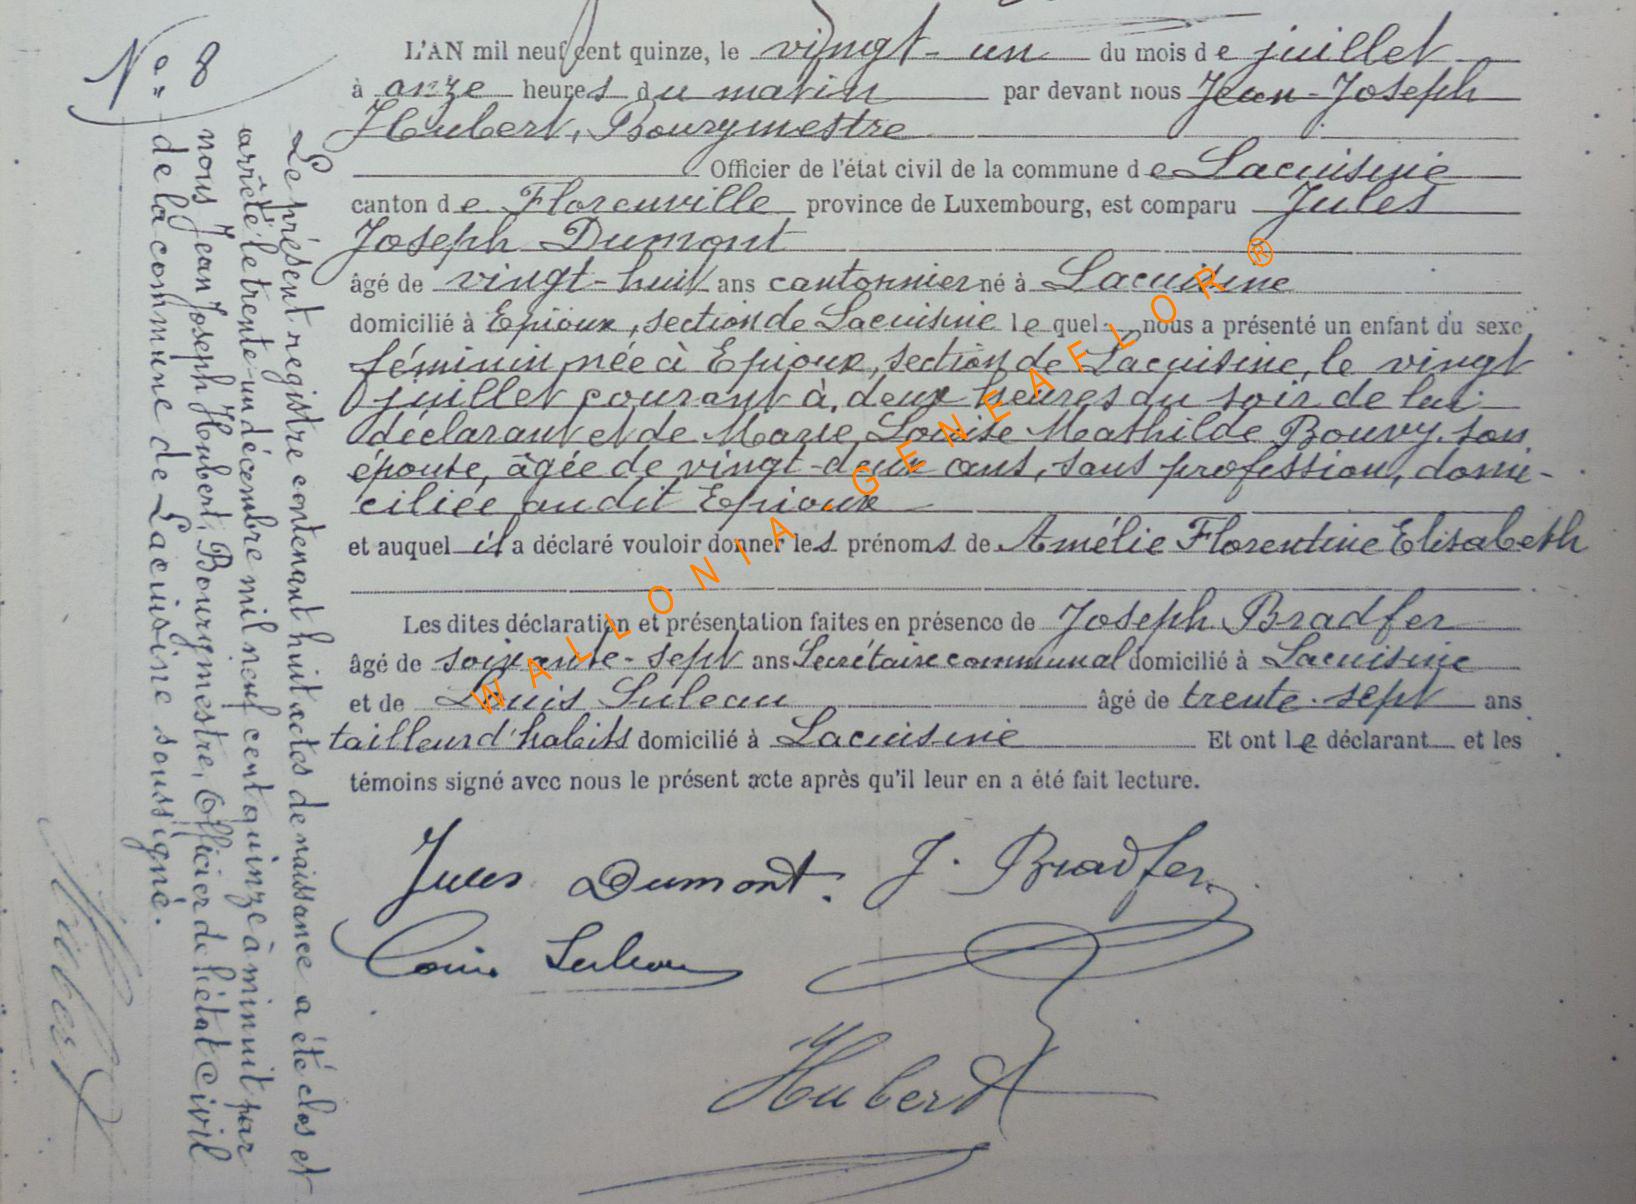 N° 8
L'AN mil neuf cent quinze, le vingt-un du mois de juillet
à onze heures du matin par devant nous Jean-Joseph
Hubert, Bourgmestre
Officier de l'état civil de la commune de Lacuisine
canton de Florenville province de Luxembourg, est comparu Jules
Joseph Dumont
âgé de vingt-huit ans cantonnier né à Lacuisine
domicilié à Epioux, section de Lacuisine lequel nous a présenté un enfant du sexe
féminin, née à Epioux, section de Lacuisine, le vingt
juillet courant à deux heures du soir de lui
déclarant et de Marie, Louise Mathilde Bouvy son
épouse, âgée de vingt-deux ans, sans profession, domi-
ciliée au dit Epioux
et auquel il a déclaré vouloir donner les prénoms de Amélie Florentine Elisabeth
Les dites déclaration et présentation faites en présence de Joseph Bradfer
âgé de soixante-sept ans Secrétaire communal domicilié à Lacuisine
et de Louis Suleau âgé de trente-sept ans
tailleur d'habits domicilié à Lacuisine Et ont le déclarant et les
témoins signé avec nous le présent acte après qu'il leur en a été fait lecture.
Jules Dumont. J. Bradfer
Louis Suleau
Hubert
Le présent registre contenant huit actes de naissance a été clos et
arrêté le trente-un décembre mil neuf cent quinze à minuit par
nous Jean Joseph Hubert, Bourgmestre, Officier de l'état Civil
de la commune de Lacuisine soussigné.
Hubert
WALLONIA - GENEAFLOR ®